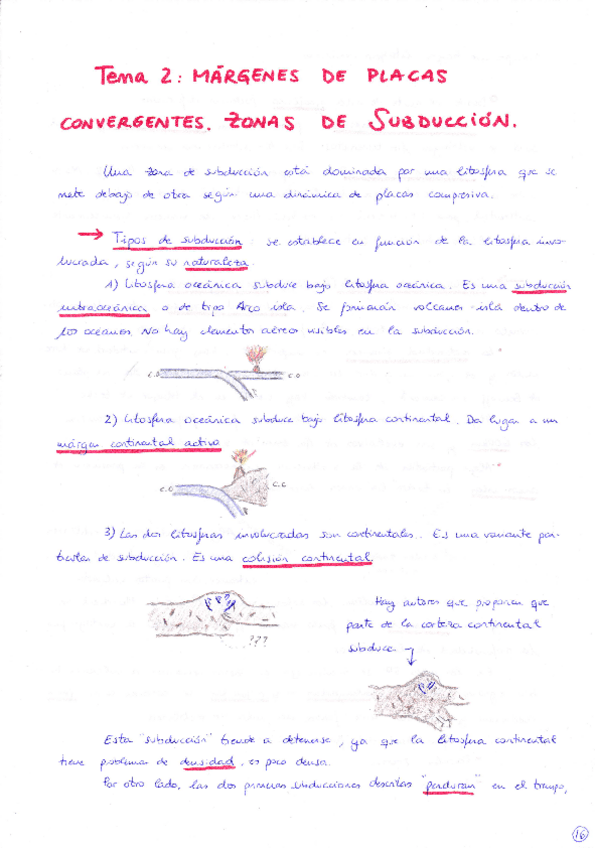 Tema 2: MÁRGENES DE PLACAS
CONVERGENTES. ZONAS DE SUBDUCCIÓN.
Una zona de subducción está dominada por una litosfera que se
mete debajo de otra según una dinámica de placas compresiva.
→ Tipos de subducción: se establece en función de la litosfera invo-
lucrada, según su naturaleza.
1) Litosfera oceánica subduce bajo litosfera oceánica. Es una subducción
intraoceánica o de tipo Arco isla. Se formarán volcanes-isla dentro de
los océanos. No hay elementos aéreos visibles en la subducción.
C.O C.O.
2) Litosfera oceánica subduce bajo litosfera continental. Da lugar a un
márgen continental activo
C.O C.C
3) Las dos litosferas involucradas son continentales. Es una variante par-
ticular de subducción. Es una colisión continental.
???
Hay autores que proponen que
parte de la corteza continental
subduce
Esta "subducción" tiende a detenerse, ya que la litosfera continental
tiene problemas de densidad, es poco densa.
Por otro lado, las dos primeras subducciones descritas "perduran" en el tiempo,
16